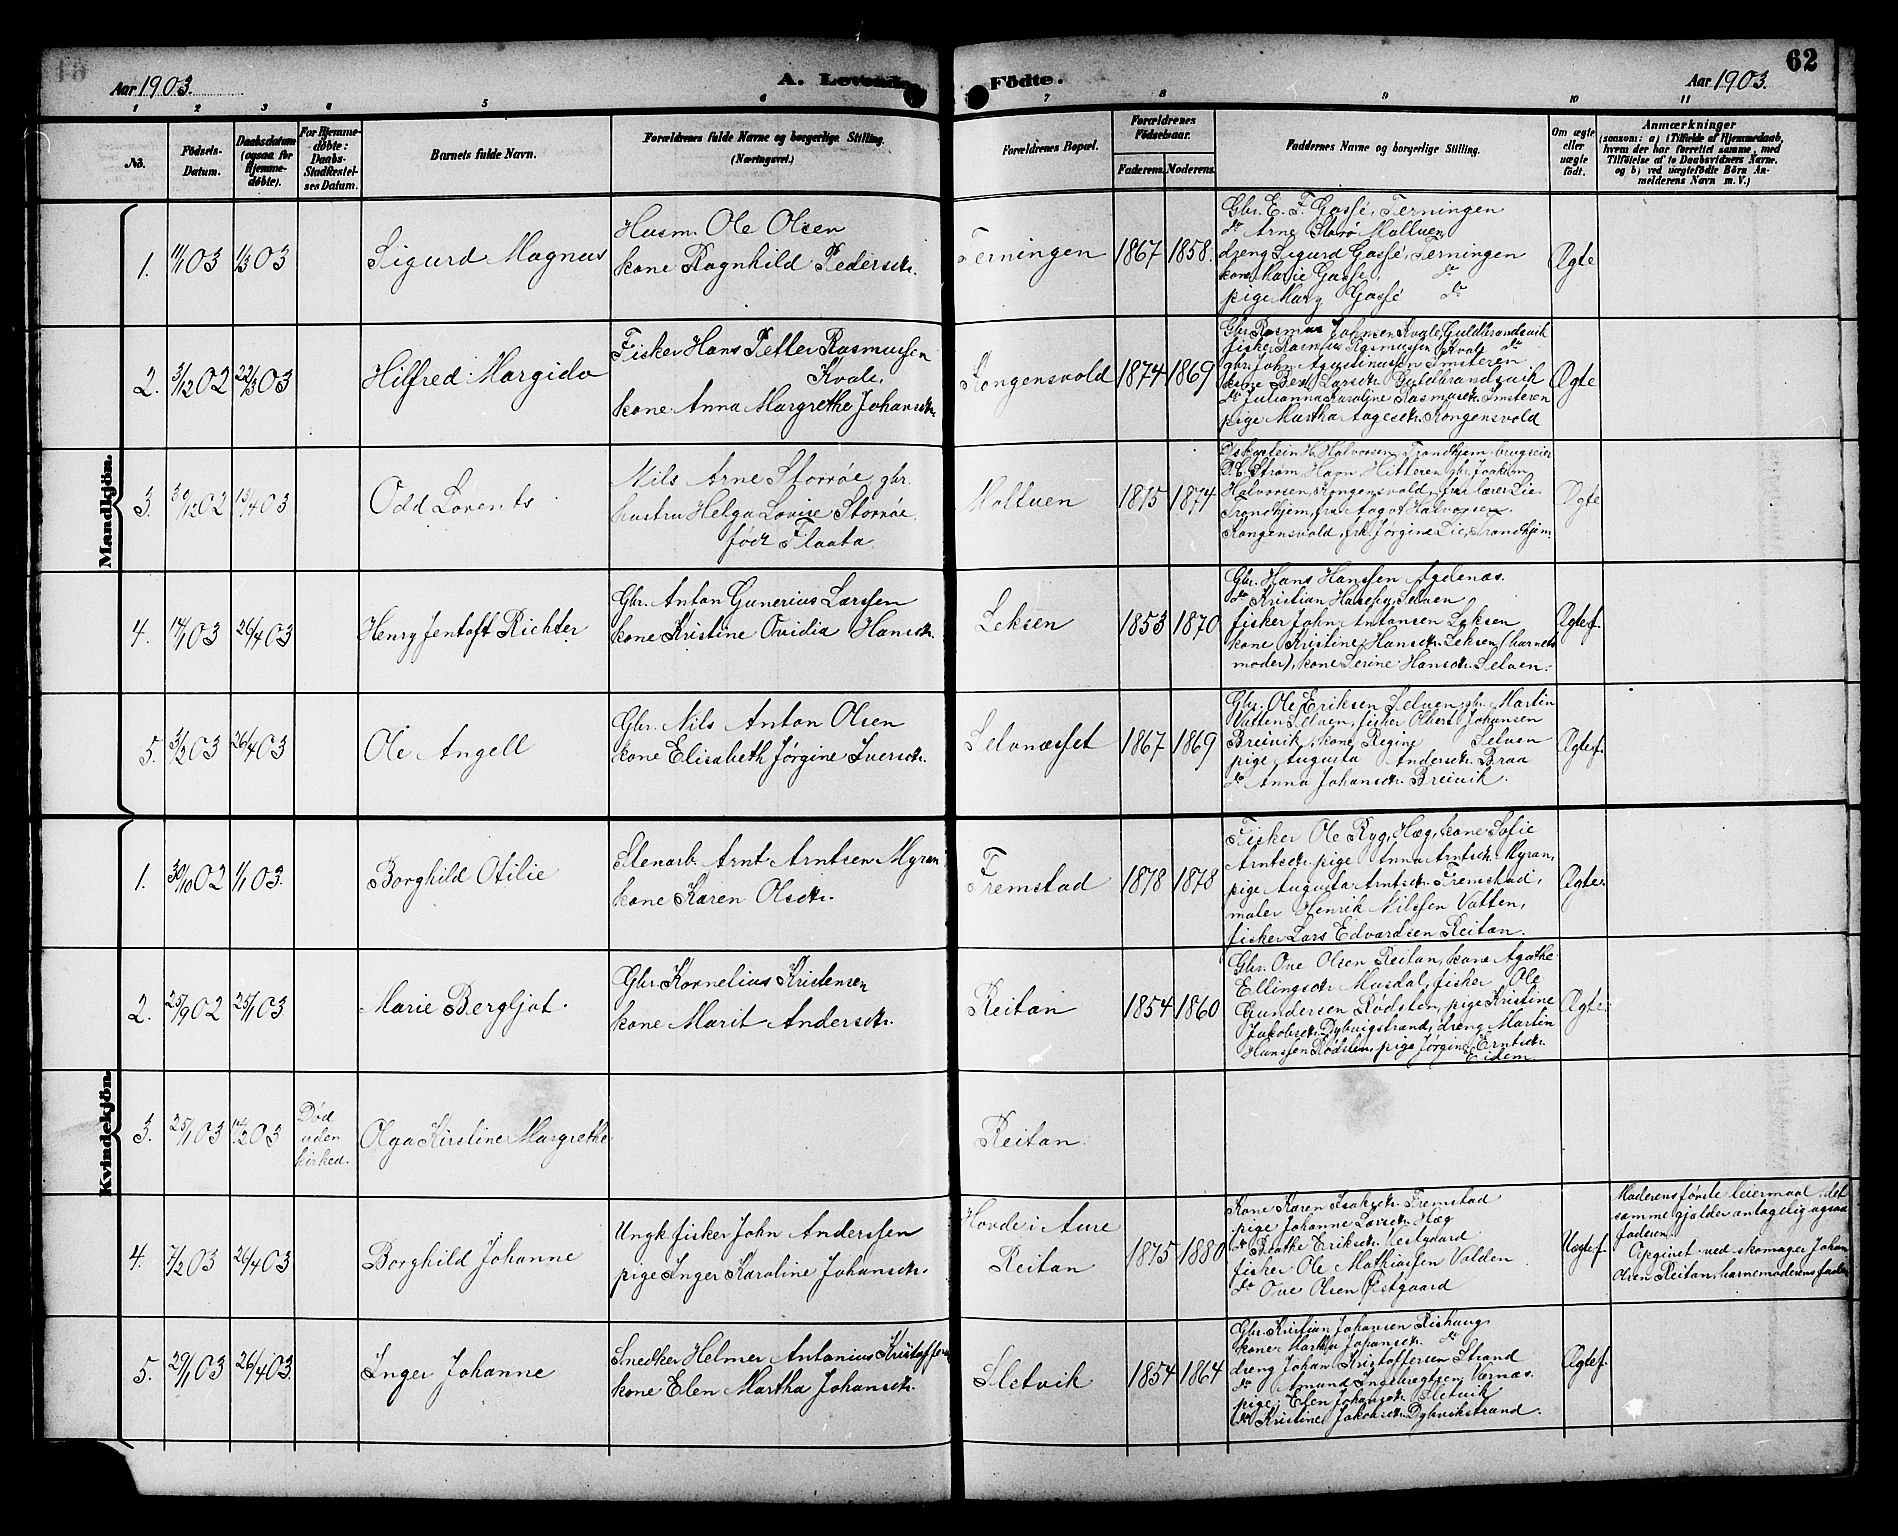 Aar 1903.
A. Levende
Födte.
Aar 1903.
62
1 2 3 4 5 6 7 8 9 10 11
No.
Födsels-
Datum.
Daabsdatum
(ogsaa for
Hjemme-
døbte).
For Hjemme-
døbte:
Daabs-
Stadfæstel-
ses Datum.
Barnets fulde Navn.
Forældrenes fulde Navne og borgerlige Stilling.
(Næringsvei.)
Forældrenes Bopæl.
Forældrenes
Födselsaar.
Faderens. Moderens.
Faddernes Navne og borgerlige Stilling.
Om ægte
eller
uægte
født.
Anmærkninger
(saasom: a) i Tilfælde af Hjemmedaab,
hvem der har forrettet samme, med
Tilföielse af to Daabsvidners Navne.
og b) ved uægtefödte Börn An-
melderens Navn m. V.)
Mandkjön.
1. 11/1 03 1/3 03
Sigurd Magnus
Husm. Ole Olsen
kone Ragnhild Pedersdtr.
Terningen
1867 1858.
Gbr. E. F. Gassé, Terningen
do Arne Storø Moltuen
dreng Sigurd Gassé, Terningen
kone Marie Gasse, do
pige Mary Gassé do
Ægte
2. 3/12 02 22/3 03
Hilfred Margido
Fisker Hans Petter Rasmussen
Kvale,
kone Anna Margrethe Johansdtr.
Kongensvold
1874 1869
Gbr. Rasmus Johnsen Kvale, Guldbrandsvik
fisker Rasmus Rasmussen Kvale do
gbr. John Agustinussen Imsteren
kone Berit Larsdtr. Guldbrandsvik
do Julianna Karoline Rasmusdtr. Imsteren
pige Martha Aagesdtr. Kongensvold
Ægte
3. 30/12 02 13/4 03
Odd Lorents
Nils Arne Storrøe gbr.
hustru Helga Lovise Storrøe,
født Flaata
Moltuen
1875 1874
H. Halvorsen, Trondhjem, brugseier
Strøm, Havn, Hitteren, gbr. Joakim
Halvorsen, Kongensvold, fru lærer Lie,
Trondhjem, fru Aagot Halvorsen,
Kongensvold, frk. Jørgine Lie, Trondhjem
Ægte
4. 14/1 03 26/4 03
Henry Jentoft Richter
Gbr. Anton Gunerius Larssen
kone Kristine Ovidia Hansdtr.
Leksen
1853 1870
Gbr. Hans Hanssen Agdenæs.
do Kristian Hansen, Selven
fisker John Antonsen Leksen
kone Kristine Hansdtr. Leksen (barnets
moder), kone Serine Hansdtr. Selven.
Ægtef.
5. 3/2 03 26/4 03
Ole Angell
Gbr. Nils Anton Olsen
kone Elisabeth Jørgine Iversdtr.
Selvnæsset
1867 1869
Gbr. Ole Eriksen Selven, gbr. Martin
Vatten Selven, fisker Olbert Johansen
Breivik, kone Regine Selven
pige Augusta Andersdtr. Braa
do Anna Johansdtr. Breivik.
Ægtef.
Kvindekjön.
1. 30/10 02 1/1 03.
Borghild Otilie
Stenarb. Arnt Arntsen Myran
kone Karen Olsdtr.
Fremstad
1878 1878
Fisker Ole Ryg, Hæg, kone Sofie
Arntsdtr. pige Anna Arntsdtr. Myran,
pige Augusta Arntsdtr. Fremstad,
maler Henrik Nilssen Vatten,
fisker Lars Edvardsen Reitan.
Ægte.
2. 25/9 02 25/1 03
Marie Bergljot.
Gbr. Kornelius Kristensen
kone Marit Andersdtr.
Reitan
1854 1860
Gbr. Ove Olsen Reitan, kone Agathe
Ellingsdtr. Musdal, fisker Ole
Gundersen Rødsten, pige Kristine
Jakobsdtr. Dybvigstrand, dreng Martin
Hanssen Rødsten, pige Jørgine Erntsdtr.
Eidem
Ægte.
3. 25/1 03 14/2 03
Død
uden
kirked.
Olga Kirstine Margrethe
Reitan.
4. 7/2 03 26/4 03
Borghild Johanne
Ungk. fisker John Anderssen
pige Inger Karoline Johansdtr.
Hovde i Aure
Reitan
1875 1880
Kone Karen Isaksdtr. Fremstad
pige Johanne Larsdtr. Hæg
do Beathe Eriksdtr. Vestgaard
fisker Ole Mathiassen Valden
do Ove Olsen Østgaard
Uægtef.
Moderens første leiermaal, det
samme gjælder antagelig ogsaa
faderen.
Opgivet ved skomager Johan
Olsen Reitan, barnemoderens fader
5. 29/1 03 26/4 03.
Inger Johanne
Snedker Helmer Antonius Kristoffersen
kone Elen Martha Johansdtr.
Sletvik
1854 1864
Gbr. Kristian Johansen Rishaug
kone Martha Johansdtr. do
dreng Johan Kristoffersen Strand
do Amund Ingebregtsen Værnæs.
pige Elen Johansdtr. Sletvik
do Kristine Jakobsdtr. Dybvikstrand.
Ægtef.